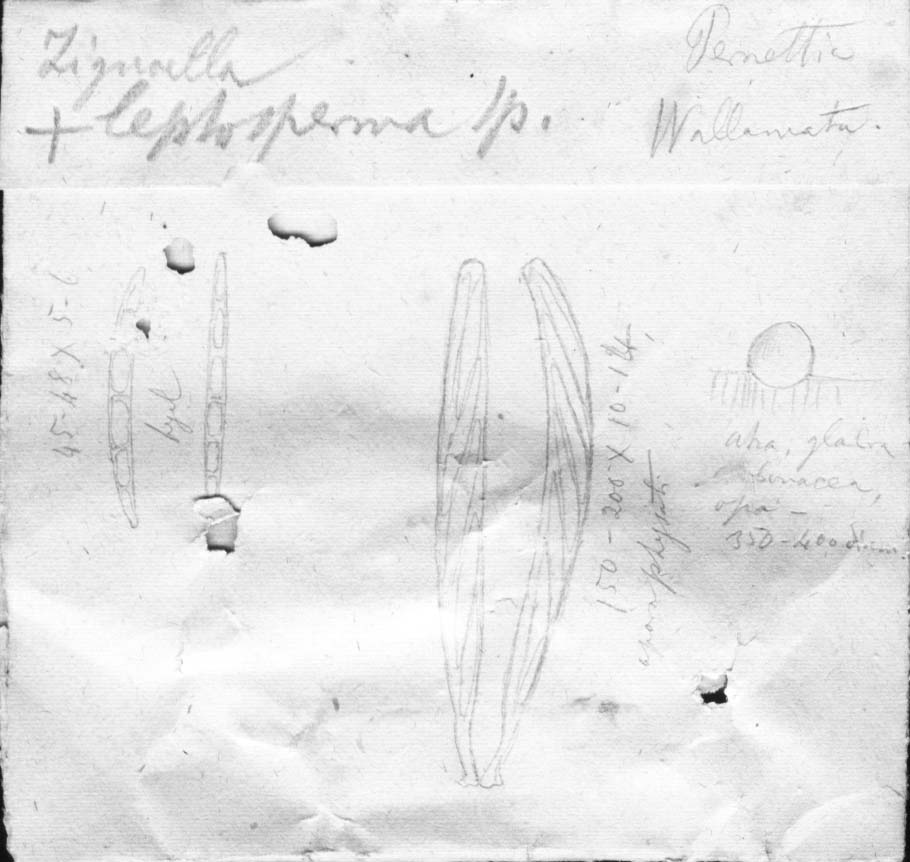 Zignoella
+ leptosperma Sp.
Pernettia
Wallamata.
45-48 X 5-6
hyal
150-200 X 10-14,
aparaphysat.
atra, glabra
carbonacea,
opa -
350-400 diam.